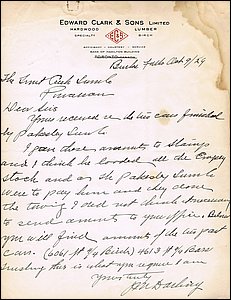 EDWARD CLARK & SONS LIMITED
HARDWOOD LUMBER
SPECIALTY BIRCH
ECS
EFFICIENCY - COURTESY - SERVICE
BANK OF HAMILTON BUILDING
TORONTO
Burks Falls Oct 9/29
The Trout Creek Lumber
Powassan
Dear Sir
Yours received re two cars finished
by Pakesley Lumb
I gave those amounts to Stamps
and I think he loaded all the Company
Stock and as the Pakesley Lumb
were to pay him and they done
the towing I did not think necessary
to send amounts to your office. Below
you will find amounts of the two past
cars. (6061 ft 4/4 Birch) 4613 ft 4/4 Bass
trusting this is what you require I am
Yours truly